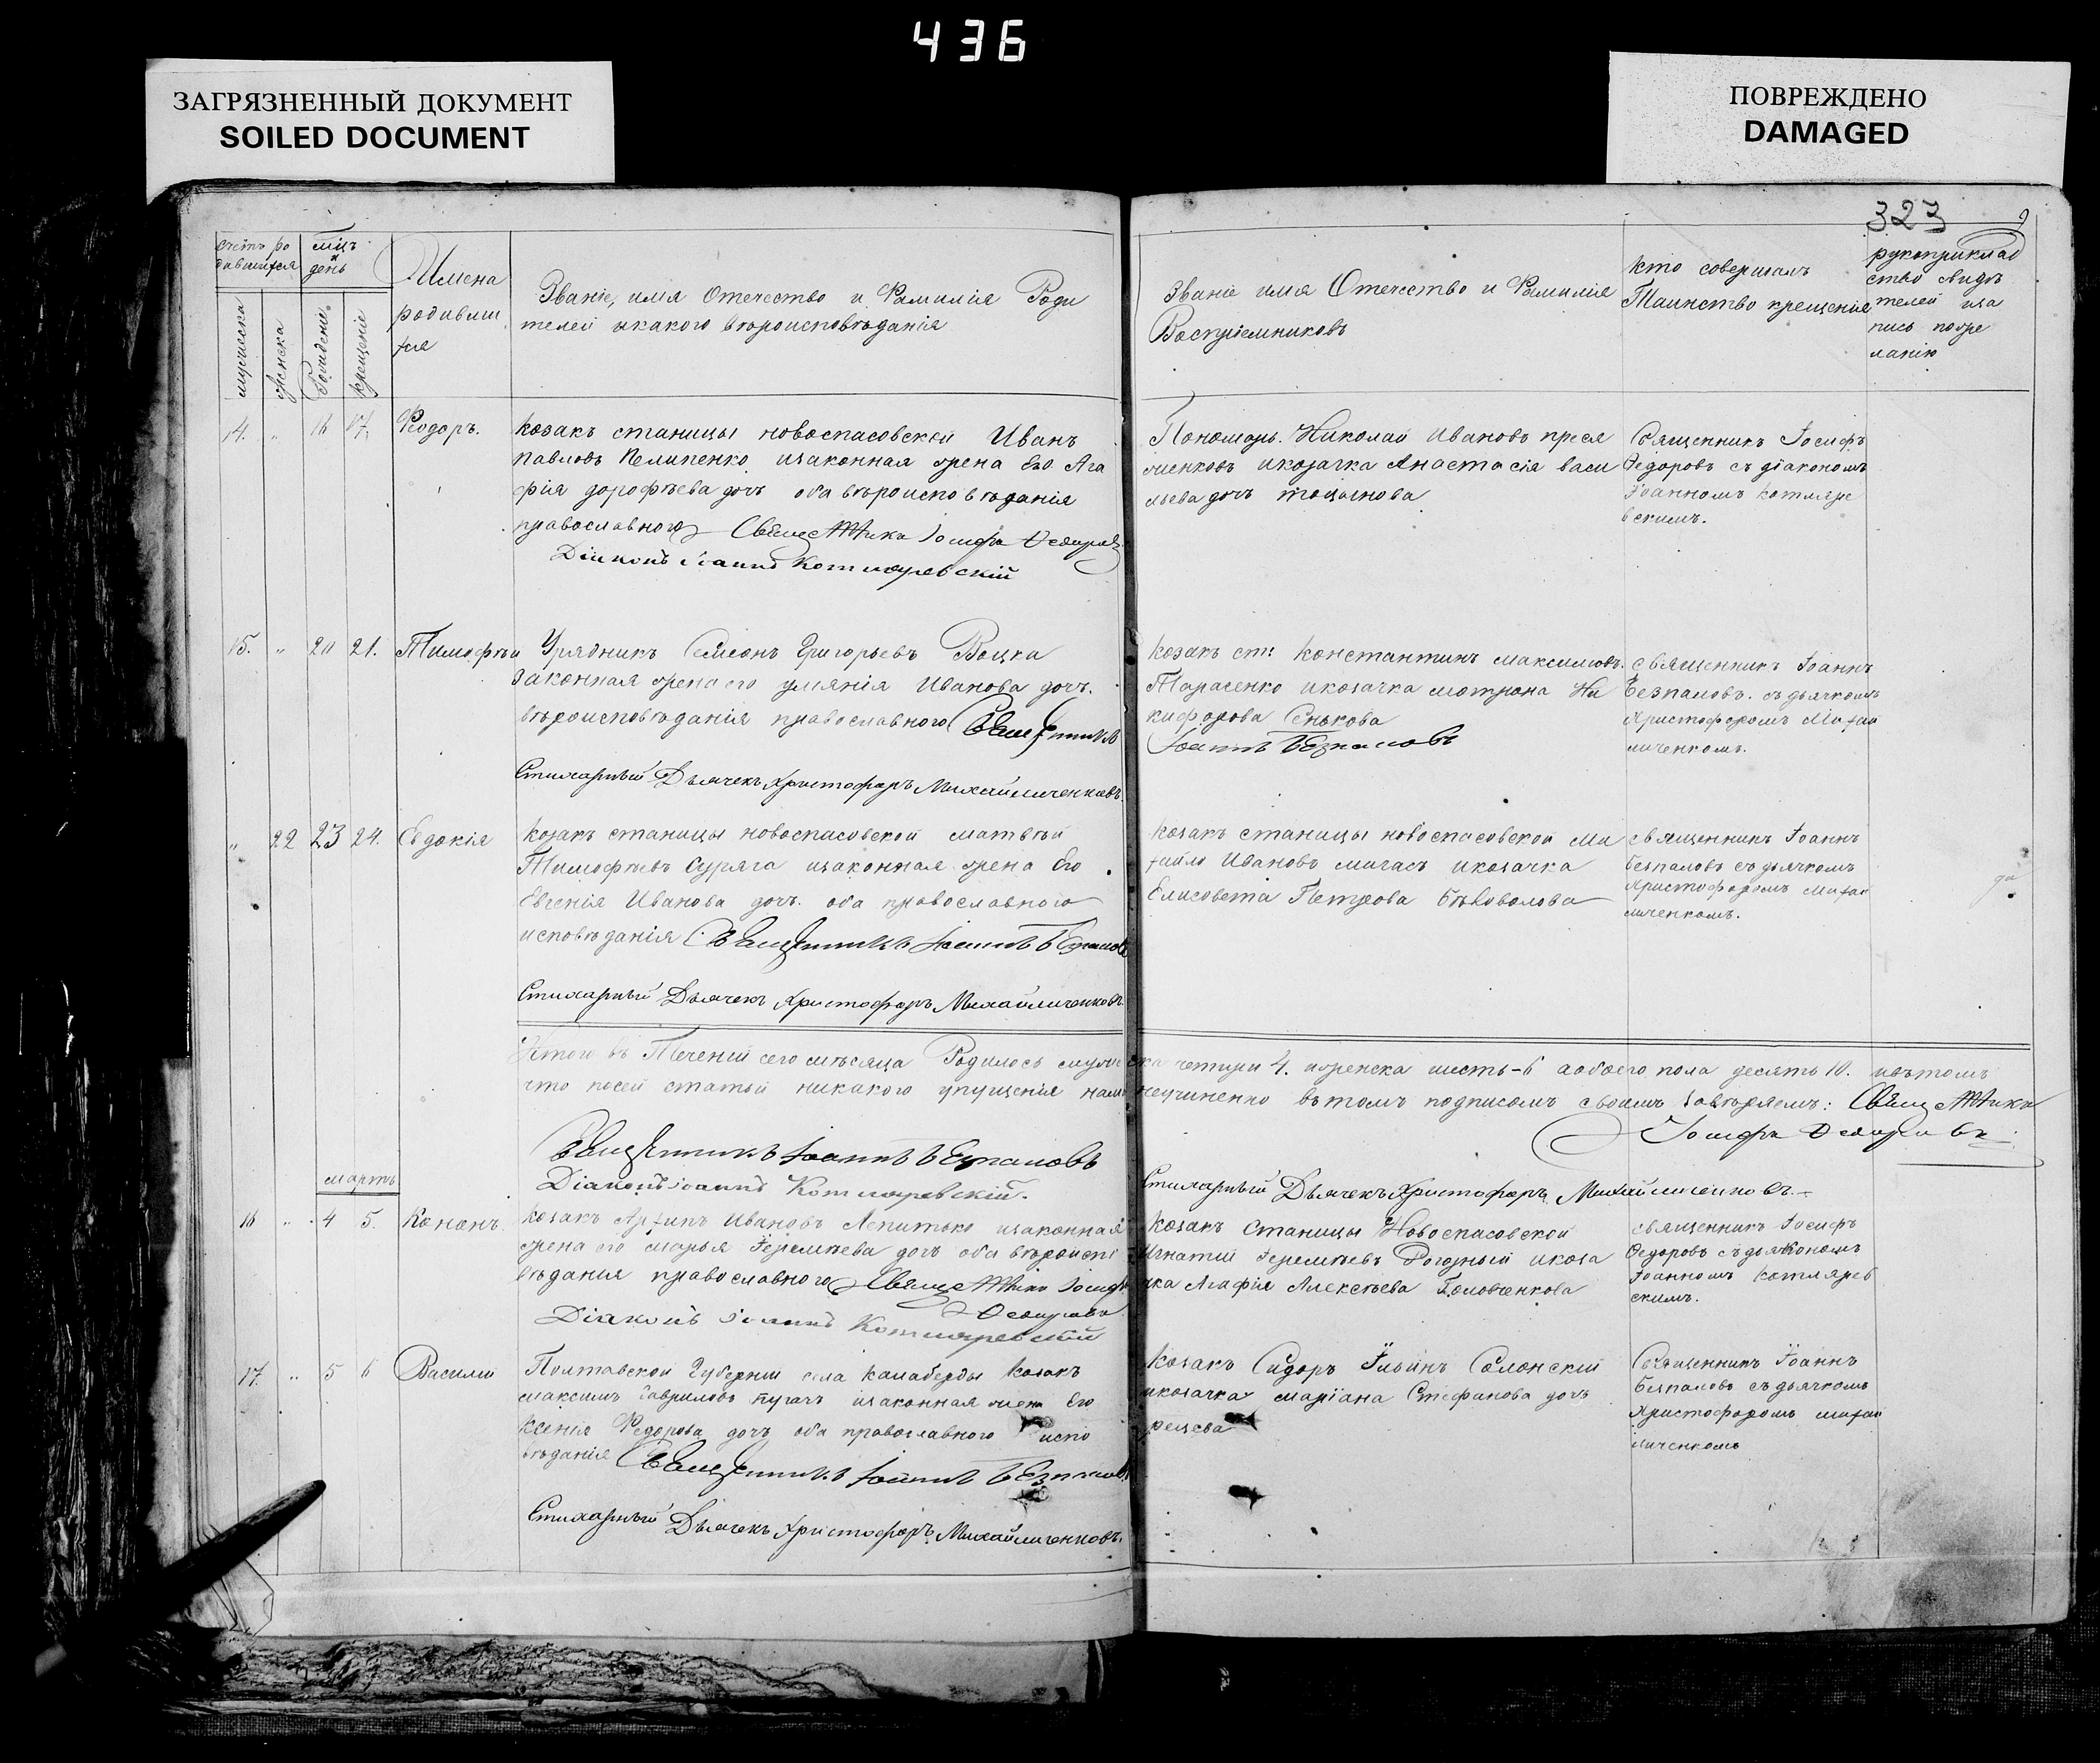 436
ЗАГРЯЗНЕННЫЙ ДОКУМЕНТ
SOILED DOCUMENT
ПОВРЕЖДЕНО
DAMAGED
323
счетъ ро
дившихся
мцъ и
день
мужеска
женска
Рожденіе
крещеніе
Имена
родивши
хся
Званіе, имя Отечество и Фамилія Роди
телей икакого вѣроисповѣданія
Званіе имя Отечество и Фамилія
Воспріемниковъ
Кто совершалъ
Таинство крещенія
рукоприклад
ство свидѣ
телей иза
пись пожѣ
ланію
14. " 16 17. Ѳеодоръ.
Козакъ станицы новоспасовской Иванъ
Павловъ Пелипенко изаконная жена Его Ага
фія дорофѣева дочь оба вѣроисповѣданія
православного Священникъ Іосифъ Ѳедоровъ
Діаконъ Іоаннъ Котляревскій
Пономарь Николай Ивановъ преся
женковъ икозачка Анастасія васи
льева дочь
Священникъ Іосифъ
Ѳедоровъ съ діакономъ
Іоанномъ Котляре
вскимъ.
15. " 20 21. Тимофѣй
Урядникъ Семеонъ Григорьевъ Воцка
Законная жена его улянія Иванова дочь.
вѣроисповѣданія православного Священникъ
Стихарный Дьячекъ Христофоръ Михайличенковъ.
Козакъ ст: Константинъ максимовъ
Тарасенко икозачка мотрона Ни
кифорова Сенькова
Іоаннъ Безпаловъ
священникъ Іоаннъ
Безпаловъ. съ дьячкомъ
Христофоромъ Михай
личенкомъ.
" 22 23 24. Евдокія
Козакъ станицы новоспасовской матвѣй
Тимофѣевъ Суряга изаконная жена Его
Евгенія Иванова дочь. оба православного
исповѣданія Священникъ Іоаннъ Безпаловъ
Стихарный Дьячекъ Христофоръ Михайличенковъ.
Козакъ станицы новоспасовской Ми
хайло Ивановъ магасъ икозачка
Елисовета Петрова Бѣловолова
священникъ Іоаннъ
Безпаловъ съ дьячкомъ
Христофоромъ Михай
личенкомъ.
Итого въ Теченіи сего мѣсяца Родилось мужеска четыри 4. иженска шесть-6 аобоего пола десять 10. ивътомъ
что посей статьи никакого упущенія нами неучиненно вътомъ подписомъ своимъ завѣряемъ: Священникъ
Іосифъ Ѳедоровъ
Священникъ Іоаннъ Безпаловъ
Діаконъ Іоаннъ Котляревскій.
Стихарный Дьячекъ Христофоръ Михайличенковъ.
мартъ
16 " 4 5. Кононъ.
Козакъ Архипъ Ивановъ Лепитько изаконная
жена его марья Іеремѣева дочь оба вѣроиспо
вѣданія православного Священникъ Іосифъ
Ѳедоровъ
Діаконъ Іоаннъ Котляревскій
Козакъ Станицы Новоспасовской
Игнатій Іеремѣевъ Рогожный икоза
чка Агафія Алексѣева Головченкова
священникъ Іосифъ
Ѳедоровъ съдьякономъ
Іоанномъ Котлярев
скимъ.
17. " 5 6 Василій
Полтавской Губерніи села Камаберды Козакъ
максимъ Гавриловъ пугачъ изаконная жена Его
Ксенія Ѳедорова дочь оба православного испо
вѣданія Священникъ Іоаннъ Безпаловъ
Стихарный Дьячекъ Христофоръ Михайличенковъ.
Козакъ Сидоръ Ильинъ Солонскій
икозачка маріана Стефанова дочь
Священникъ Іоаннъ
Безпаловъ съ дьячкомъ
Христофоромъ михай
личенкомъ